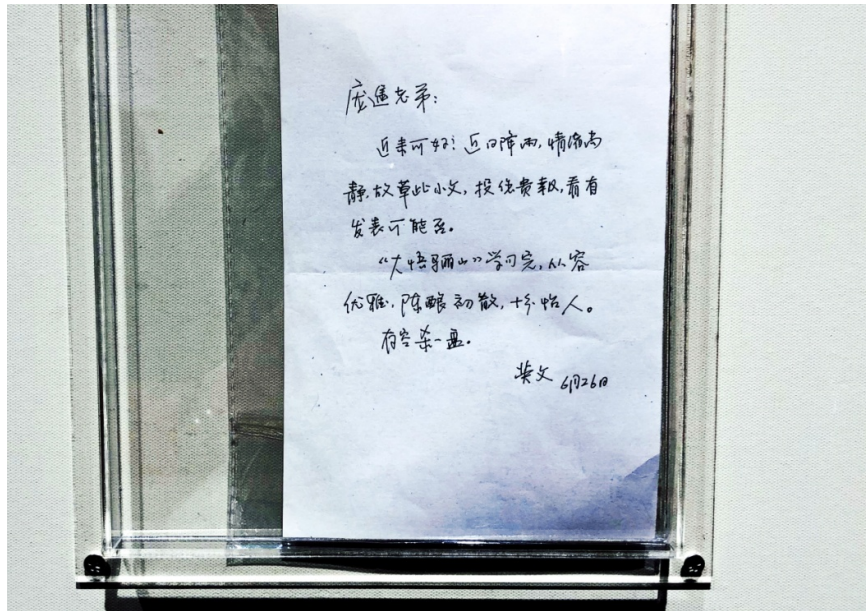 庞进老弟：
近来可好？近日降雨，情绪尚
静，故草此小文，投您贵报，看有
发表可能否。
“大悟骊山”学习完，从容
优雅，陈酿初散，十分怡人。
有空杀一盘。
英文 6月26日